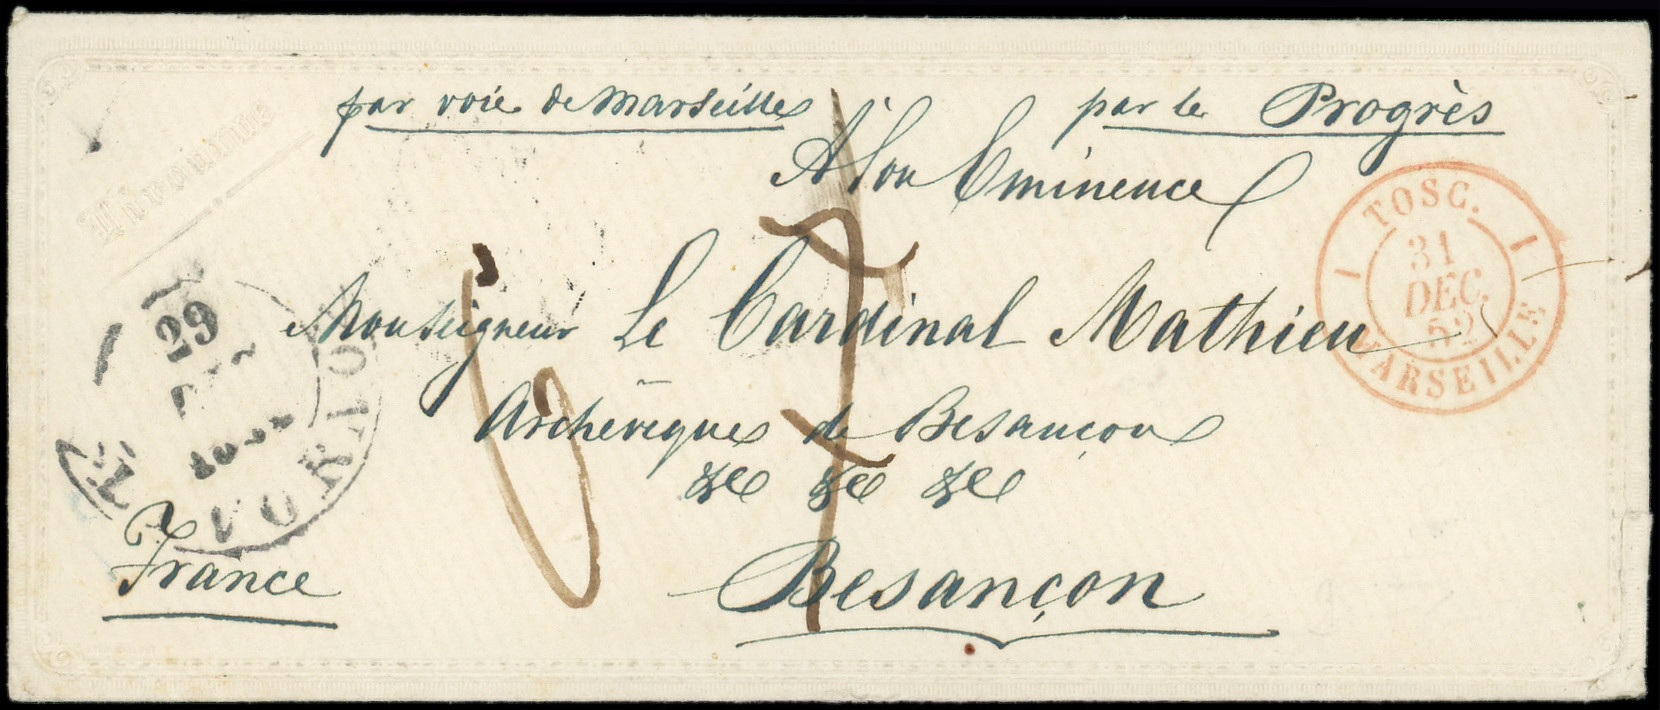 par voie de Marseille
par le Progrès
A Son Eminence
Monseigneur Le Cardinal Mathieu
Archevêque de Besançon
&c &c &c
Besançon
France
TOSC.
31
DEC.
52
MARSEILLE
29